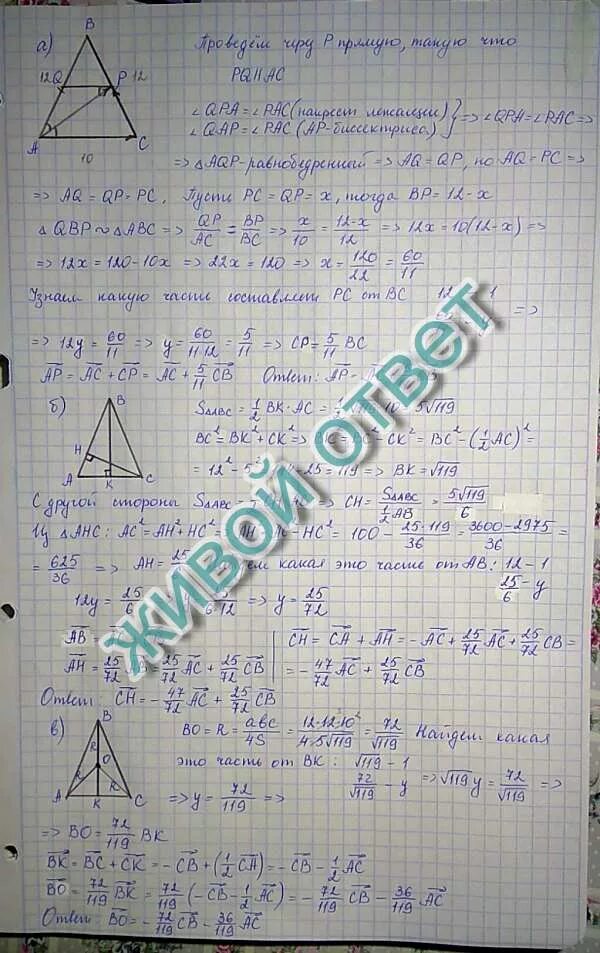 а)
B
12 Q P 12
A C
10
Проведём через P прямую, такую что
PQ||AC
∠QPA = ∠PAC (накрест лежащие)
∠QAP = ∠PAC (AP-биссектриса) } => ∠QPA = ∠PAC =>
=> △AQP-равнобедренный => AQ = QP, но AQ = PC =>
=> AQ = QP = PC. Пусть PC = QP = x, тогда BP = 12-x
△QBP ~ △ABC => QP/AC = BP/BC => x/10 = 12-x/12 => 12x = 10(12-x) =>
=> 12x = 120-10x => 22x = 120 => x = 120/22 = 60/11
Узнаем какую часть составляет PC от BC 12 - 1
=>
=> 12y = 60/11 => y = 60/11·12 = 5/11 => CP = 5/11 BC
AP = AC + CP = AC + 5/11 CB Ответ: AP =
б)
B
H
A K C
S△ABC = 1/2 BK·AC = √119·10 = 5√119
BC² = BK² + CK² => BK = BC² - CK² = BC² - (1/2 AC)² =
= 12² - 5 25 = 119 => BK = √119
С другой стороны S△ABC = => CH = S△ABC / 1/2 AB = 5√119/6
Из △AHC: AC² = AH² + HC² AC - HC² = 100 - 25·119/36 = 3600-2975/36 =
= 625/36 => AH = 25 какая это часть от AB: 12 - 1
25/6 - y
12y = 25/6 6·12 => y = 25/72
AB =
AH = 25/72 25/72 AC + 25/72 CB
CH = CA + AH = -AC + 25/72 AC + 25/72 CB =
= -47/72 AC + 25/72 CB
Ответ: CH = -47/72 AC + 25/72 CB
в)
B
R O
R R
A K C
BO = R = abc/4S = 12·12·10/4·5√119 = 72/√119 Найдём какая
это часть от BK: √119 - 1
72/√119 - y => √119 y = 72/√119 =>
=> y = 72/119 =>
=> BO = 72/119 BK
BK = BC + CK = -CB + (1/2 CA) = -CB - 1/2 AC
BO = 72/119 BK = 72/119 (-CB - 1/2 AC) = -72/119 CB - 36/119 AC
Ответ: BO = -72/119 CB - 36/119 AC
ЖИВОЙ ОТВЕТ